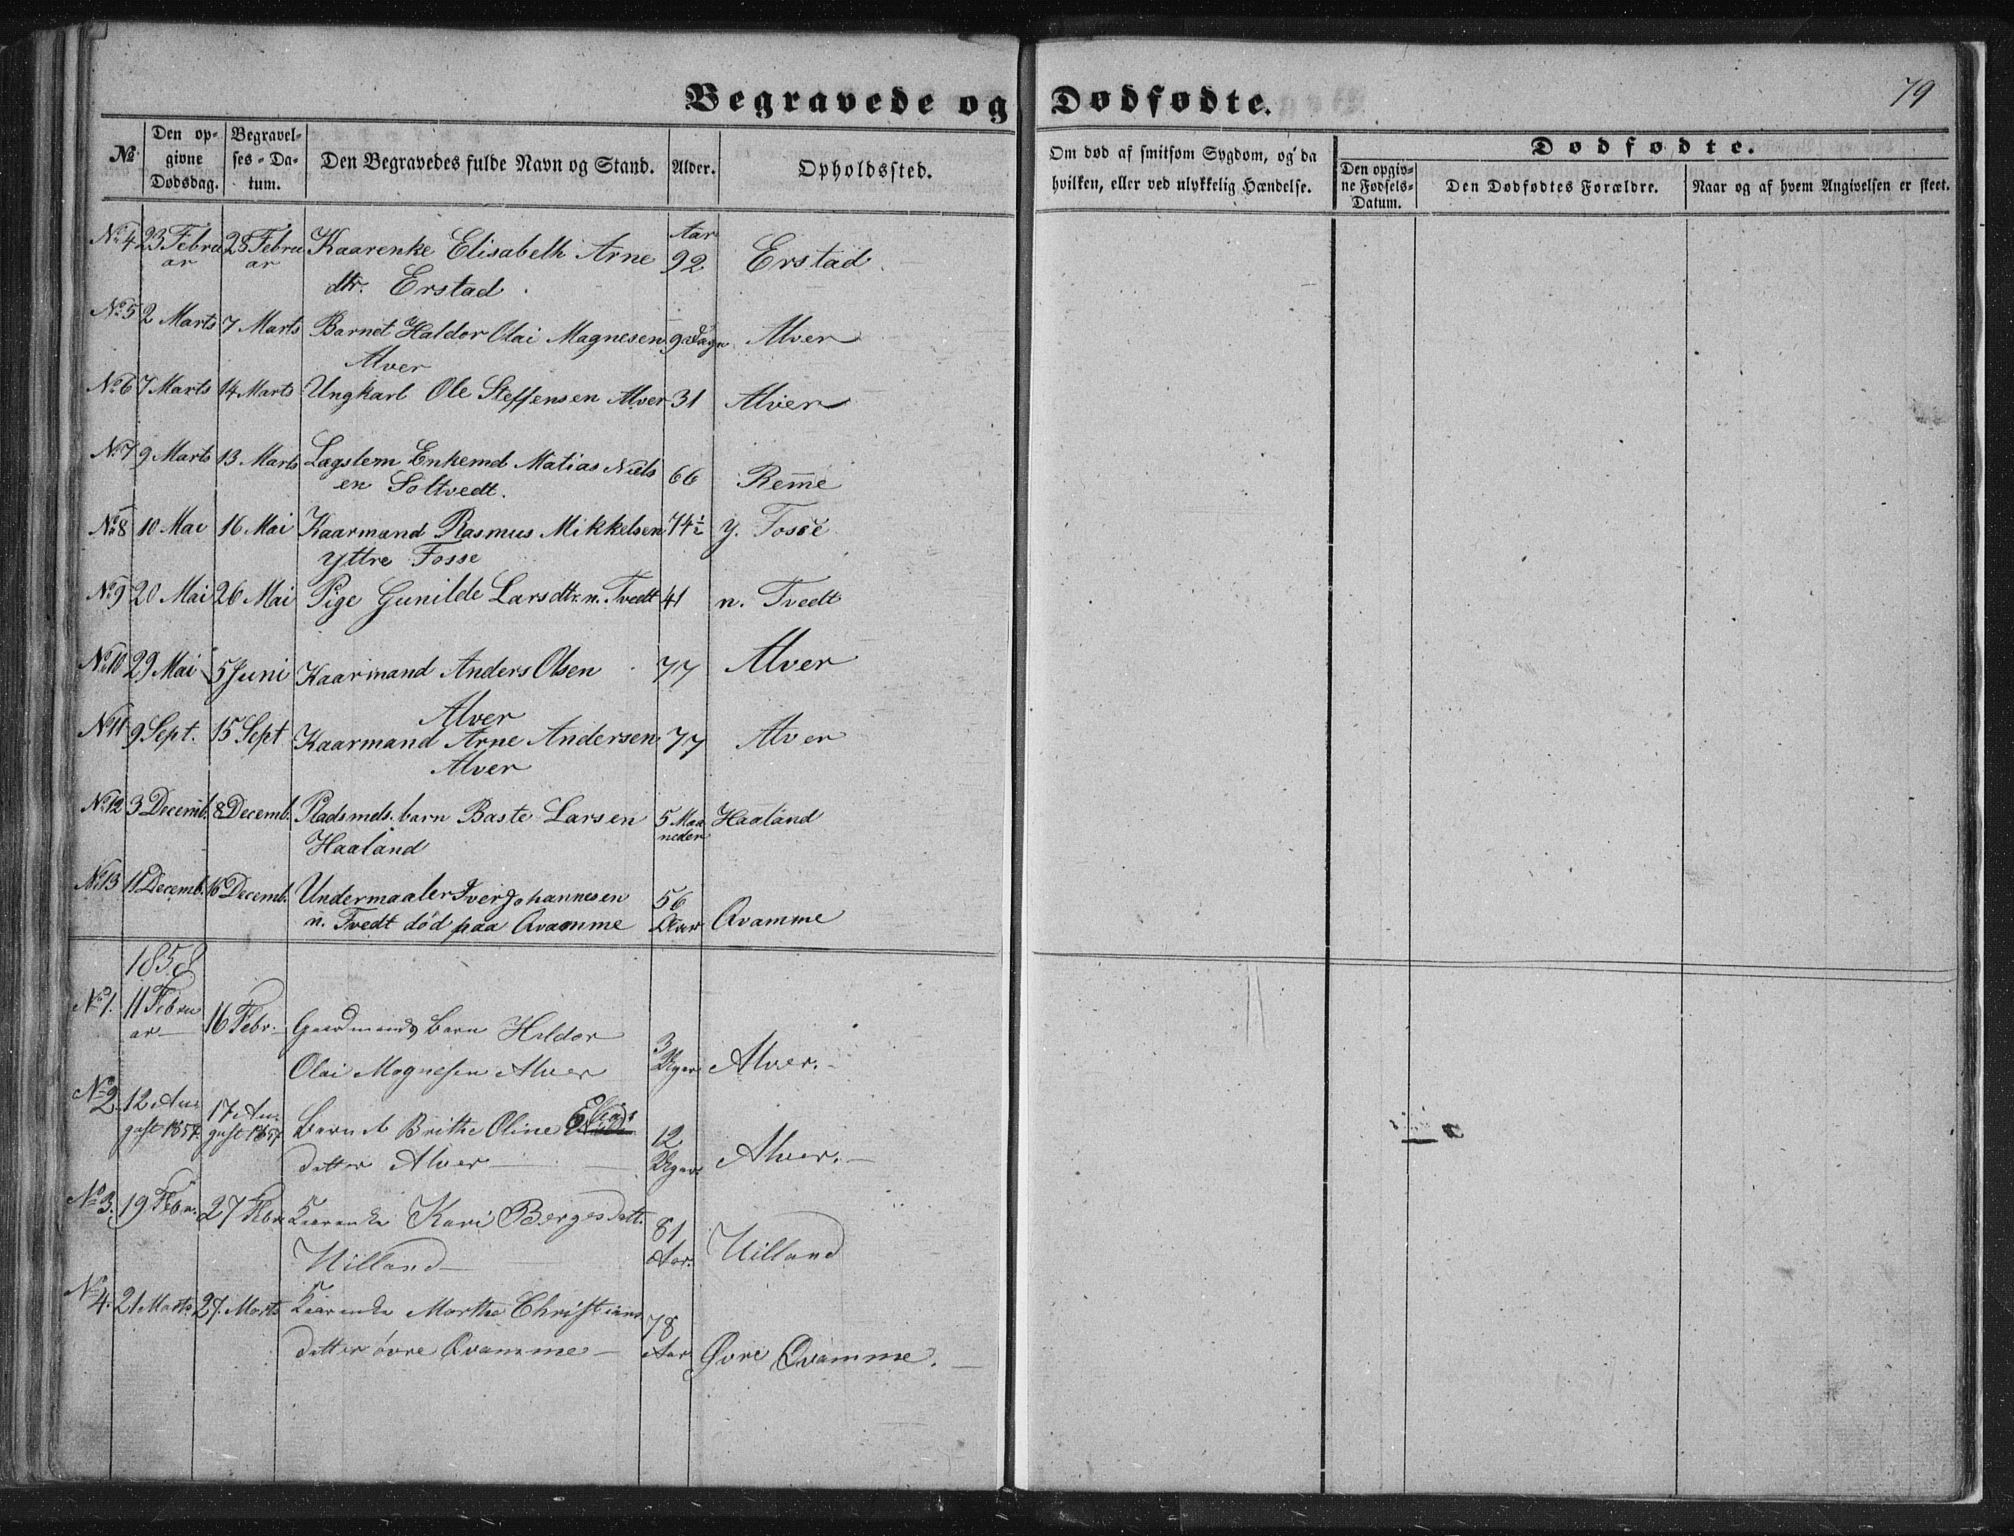 79
Begravede og Dødfødte.
№
Den opgivne Dødsdag.
Begravelses-Datum.
Den Begravedes fulde Navn og Stand.
Alder.
Opholdssted.
Om død af smitsom Sygdom, og da hvilken, eller ved ulykkelig Hændelse.
Dødfødte.
Den opgivne Fødsels-Datum.
Den Dødfødtes Forældre.
Naar og af hvem Angivelsen er skeet.
No 4 23 Februar 28 Februar Kaarenke Elisabeth Arne Aar 92 Erstad
dtr. Erstad
No 5 2 Marts 7 Marts Barnet Haldor Olai Magnesen 9 Dage Alver
Alver
No 6 7 Marts 14 Marts Ungkarl Ole Steffensen Alver 31 Alver
No 7 9 Marts 13 Marts Lægslem Enkemd Matias Niels 66 Remme
en Soltvedt.
No 8 10 Mai 16 Mai Kaarmand Rasmus Mikkelsen 74½ y. Fosse
Yttre Fosse
No 9 20 Mai 26 Mai Pige Gunilde Larsdtr. n. Tvedt 41 n. Tvedt
No 10 29 Mai 5 Juni Kaarmand Anders Olsen 77 Alver
Alver
No 11 9 Sept. 15 Sept Kaarmand Arne Andersen 77 Alver
Alver
No 12 3 Decemb. 8 Decemb. Pladsmds. barn Baste Larsen 5 Maaneder Haaland
Haaland
No 13 11 Decemb. 16 Decemb. Undermaaler Iver Johannesen 56 Qvamme
n. Tvedt död paa Qvamme Aar
1858
No 1. 11 Februar 16 Febr. Gaardmands Barn Hildor
Olai Mognesen Alver 3 Uger Alver.
No 2 12 August 1857. 17 August 1857 Barnet Brithe Oline Elias
datter Alver 12 Uger Alver.
No 3. 19 Febr. 27 Febr Kaarenke Kari Bergesdatt.
Uilland 81 Aar. Uilland
No 4. 21 Marts 27 Marts Kaarenke Marthe Christians
datter övre Qvamme 78 Aar Øvre Qvamme.